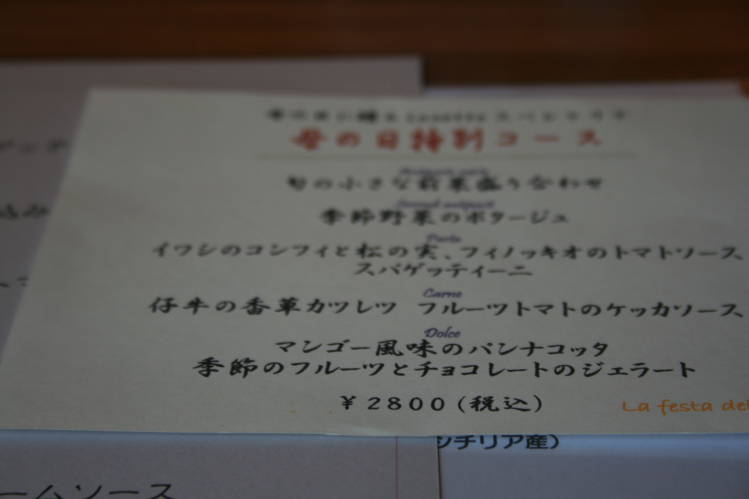 母の日特別コース
旬の小さな前菜盛り合わせ
季節野菜のポタージュ
Pasta
イワシのコンフィと松の実、フィノッキオのトマトソース、
スパゲッティーニ
Carne
仔牛の香草カツレツ フルーツトマトのケッカソース、
Dolce
マンゴー風味のパンナコッタ
季節のフルーツとチョコレートのジェラート
¥2800(税込)
La festa del
シチリア産)
ームソース